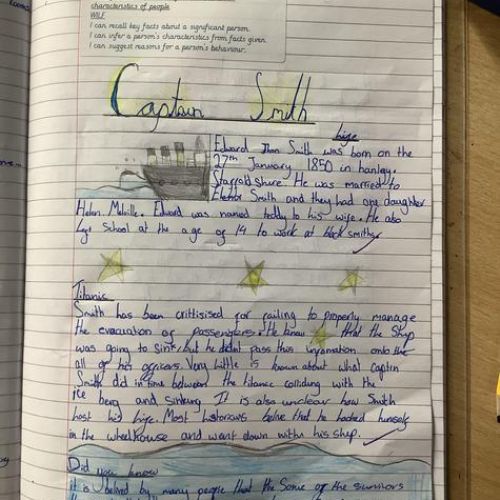 characteristics of people
WILF
I can recall key facts about a significant person.
I can infer a person's characteristics from facts given.
I can suggest reasons for a person's behaviour.
Captain Smith
life
Edward Jhon Smith was born on the
27th January 1850 in hanley,
Staffordshire. He was married to
Elenor Smith and they had one daughter
Helen Melville. Edward was named teddy to his wife. He also
left School at the age of 14 to work at black smiths
Titanic
Smith has been crittisised for failing to properly manage
the evacuation of passensers. He knew that the Ship
was going to sink, but he didnt pass this infomation onto the
all of his officers. Very little is known about what capten
Smith did in time between the titanic colliding with the
ice berg and sinking It is also unclear how Smith
lost his life. Most historians belive that he locked himself
in the wheelhouse and went down with his ship.
Did you know
it is belived by many people that the Some of the survivors